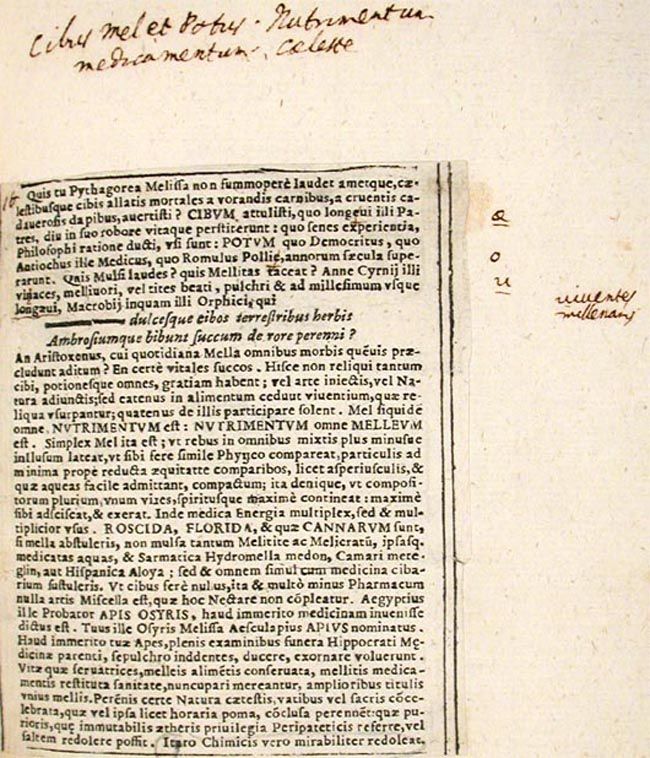 Cibus mel et Potus. Nutrimentum
medicamentum. Cæleste
16
Quis tu Pythagorea Melissa non summoperè laudet ametque, cæ-
lestibusque cibis allatis mortales a vorandis carnibus, a cruentis ca-
dauerosis dapibus, auertisti? CIBVM attulisti, quo longeui illi Pa-
tres, diu in suo robore vitaque perstiterunt: quo senes experientia,
Philosophi ratione ducti, vsi sunt: POTVM quo Democritus, quo
Antiochus ille Medicus, quo Romulus Pollio, annorum sæcula supe-
rarunt. Quis Mulsi laudes? quis Mellitas taceat? Anne Cyrnij illi
viuaces, melliuori, vel tites beati, pulchri & ad millesimum vsque
longæui, Macrobij inquam illi Orphici, qui
dulcesque cibos terrestribus herbis
Ambrosiumque bibunt succum de rore perenni?
An Aristoxenus, cui quotidiana Mella omnibus morbis quëuis præ-
cludunt aditum? En certè vitales succos. Hisce non reliqui tantum
cibi, potionesque omnes, gratiam habent; vel arte iniectis, vel Na-
tura adiunctis; sed eatenus in alimentum ceduut viuentium, quæ re-
liqua vsurpantur; quatenus de illis participare solent. Mel siquidē
omne NVTRIMENTVM est: NVTRIMENTVM omne MELLEVM
est. Simplex Mel ita est; vt rebus in omnibus mixtis plus minusue
inllusum lateat, vt sibi fere simile Physico compareat, particulis ad
minima propè reducta æquitatte comparibos, licet asperiusculis, &
quæ aqueas facile admittant, compactum; ita denique, vt composi-
torum plurium, vnum vires, spiritusque maximè contineat: maximè
sibi adsciscat, & exerat. Inde medica Energia multiplex, sed & mul-
tiplicior vsus. ROSCIDA, FLORIDA, & quæ CANNARVM sunt,
si mella abstuleris, non mulsa tantum Melitite ac Melicratū, ipsasq.
medicatas aquas, & Sarmatica Hydromella medon, Camari mere-
glin, aut Hispanica Aloya; sed & omnem simul cum medicina ciba-
rium sustuleris. Vt cibus ferè nullus, ita & multò minus Pharmacum
nulla artis Miscella est, quæ hoc Nectare non cōpleatur. Aegyptius
ille Probator APIS OSYRIS, haud immerito medicinam inuenisse
dictus est. Tuus ille Osyris Melissa Aesculapius APIVS nominatus.
Haud immerito tuæ Apes, plenis examinibus funera Hippocrati Me-
dicinæ parenti, sepulchro inddentes, ducere, exornare voluerunt.
Vitæ quæ seruatrices, melleis alimētis conseruata, mellitis medica-
mentis restituta sanitate, nuncupari mereantur, amplioribus titulis
vnius mellis. Perēnis certe Natura cætestis, vatibus vel sacris cōce-
lebrata, quæ vel ipsa licet horaria poma, cōclusa perennēt: quæ pu-
rioris, quę immutabilis ætheris priuilegia Peripateticis referre, vel
saltem redolere possit. Itaro Chimicis vero mirabiliter redoleat.
æ
o
u
viuentes
millenarij